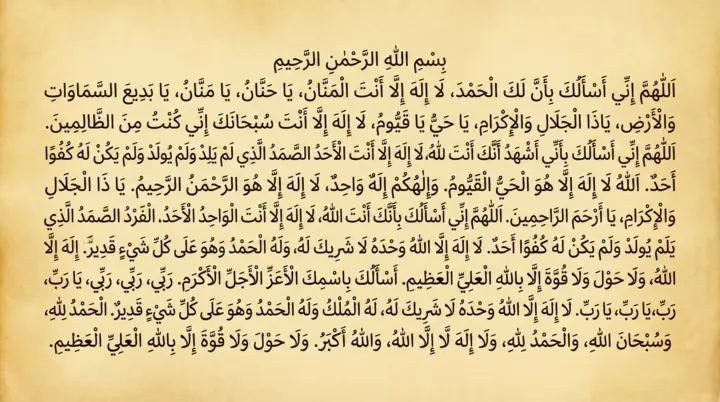 بِسْمِ اللهِ الرَّحْمٰنِ الرَّحِيمِ
اَللّٰهُمَّ إِنِّي أَسْأَلُكَ بِأَنَّ لَكَ الْحَمْدَ، لَا إِلَهَ إِلَّا أَنْتَ الْمَنَّانُ، يَا حَنَّانُ، يَا مَنَّانُ، يَا بَدِيعَ السَّمَاوَاتِ
وَالْأَرْضِ، يَاذَا الْجَلَالِ وَالْإِكْرَامِ، يَا حَيُّ يَا قَيُّومُ، لَا إِلَهَ إِلَّا أَنْتَ سُبْحَانَكَ إِنِّي كُنْتُ مِنَ الظَّالِمِينَ.
اَللّٰهُمَّ إِنِّي أَسْأَلُكَ بِأَنِّي أَشْهَدُ أَنَّكَ أَنْتَ اللهُ،لَا إِلَهَ إِلَّا أَنْتَ الْأَحَدُ الصَّمَدُ الَّذِي لَمْ يَلِدْ وَلَمْ يُولَدْ وَلَمْ يَكُنْ لَهُ كُفُوًا
أَحَدٌ. اَللهُ لَا إِلَهَ إِلَّا هُوَ الْحَيُّ الْقَيُّومُ. وَإِلٰهُكُمْ إِلَهٌ وَاحِدٌ، لَا إِلَهَ إِلَّا هُوَ الرَّحْمَنُ الرَّحِيمُ. يَا ذَا الْجَلَالِ
وَالْإِكْرَامِ، يَا أَرْحَمَ الرَّاحِمِينَ. اَللّٰهُمَّ إِنِّي أَسْأَلُكَ بِأَنَّكَ أَنْتَ اللهُ، لَا إِلَهَ إِلَّا أَنْتَ الْوَاحِدُ الْأَحَدُ. الْفَرْدُ الصَّمَدُ الَّذِي
يَلَمْ يُولَدْ وَلَمْ يَكُنْ لَهُ كُفُوًا أَحَدٌ. لَا إِلَهَ إِلَّا اللهُ وَحْدَهُ لَا شَرِيكَ لَهُ، وَلَهُ الْحَمْدُ وَهُوَ عَلَى كُلِّ شَيْءٍ قَدِيرٌ. إِلَهَ إِلَّا
اللهُ، وَلَا حَوْلَ وَلَا قُوَّةَ إِلَّا بِاللهِ الْعَلِيِّ الْعَظِيمِ. أَسْأَلُكَ بِاسْمِكَ الْأَعَزِّ الْأَجَلِّ الْأَكْرَمِ. رَبِّي، رَبِّي، رَبِّي، يَا رَبِّ،
رَبِّ،يَا رَبِّ، يَا رَبِّ. لَا إِلَهَ إِلَّا اللهُ وَحْدَهُ لَا شَرِيكَ لَهُ، لَهُ الْمُلْكُ وَلَهُ الْحَمْدُ وَهُوَ عَلَى كُلِّ شَيْءٍ قَدِيرٌ. الْحَمْدُ لِلّٰهِ،
وَسُبْحَانَ اللهِ، وَالْحَمْدُ لِلّٰهِ، وَلَا إِلَهَ لَّا إِلَّا اللهُ، وَاللهُ أَكْبَرُ. وَلَا حَوْلَ وَلَا قُوَّةَ إِلَّا بِاللهِ الْعَلِيِّ الْعَظِيمِ.